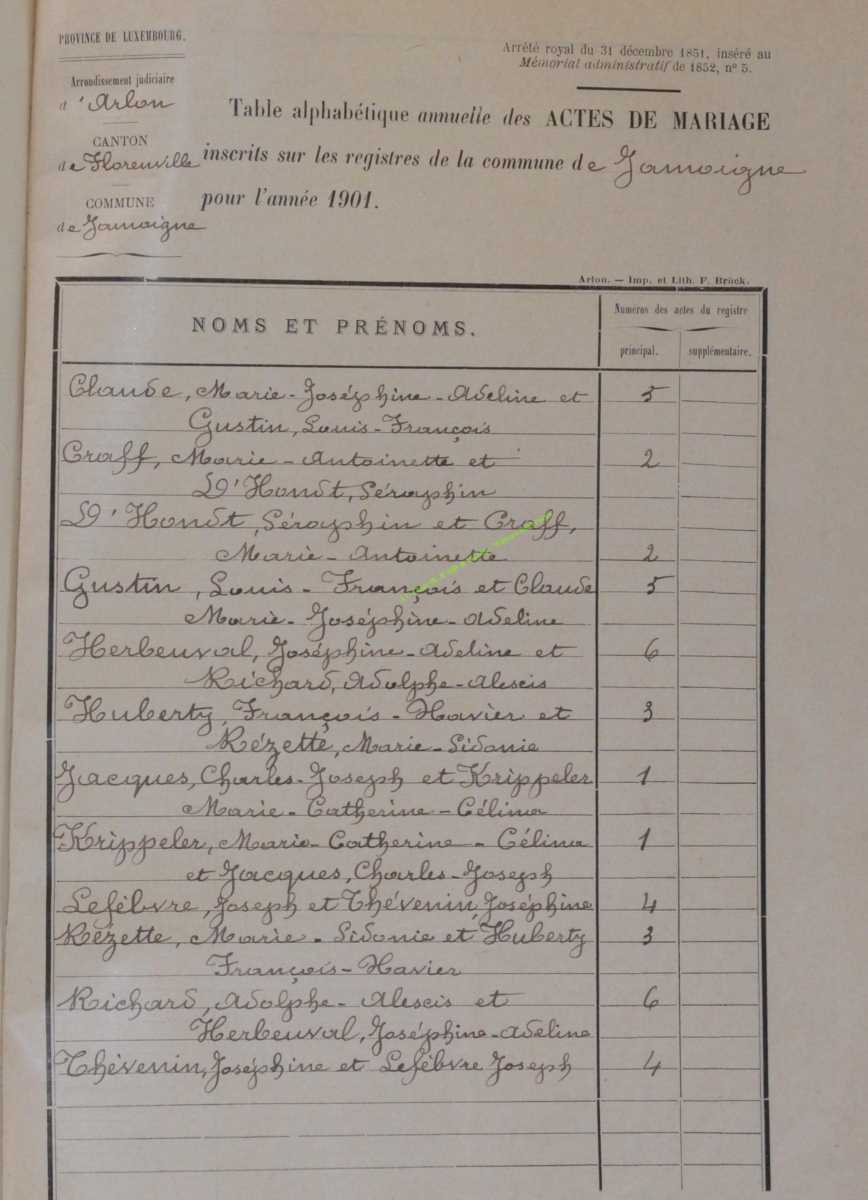 PROVINCE DE LUXEMBOURG.
Arrondissement judiciaire
d'Arlon
CANTON
de Florenville
COMMUNE
de Jamoigne
Arrêté royal du 31 décembre 1851, inséré au
Mémorial administratif de 1852, n° 5.
Table alphabétique annuelle des ACTES DE MARIAGE
inscrits sur les registres de la commune de Jamoigne
pour l'année 1901.
Arlon. — Imp. et Lith. F. Brück.
NOMS ET PRÉNOMS.
Numéros des actes du registre
principal. supplémentaire.
Claude, Marie-Joséphine-Adeline et 5
Gustin, Louis-François
Craff, Marie-Antoinette et 2
D'Hondt, Séraphin
D'Hondt, Séraphin et Craff,
Marie-Antoinette 2
Gustin, Louis-François et Claude 5
Marie-Joséphine-Adeline
Herbeuval, Joséphine-Adeline et 6
Richard, Adolphe-Alescis
Huberty, François-Xavier et 3
Rézette, Marie-Sidonie
Jacques, Charles-Joseph et Krippeler 1
Marie-Catherine-Célina
Krippeler, Marie-Catherine-Célina 1
et Jacques, Charles-Joseph
Lefèbvre, Joseph et Thévenin, Joséphine 4
Rézette, Marie-Sidonie et Huberty 3
François-Xavier
Richard, Adolphe-Alescis et 6
Herbeuval, Joséphine-Adeline
Thévenin, Joséphine et Lefèbvre Joseph 4